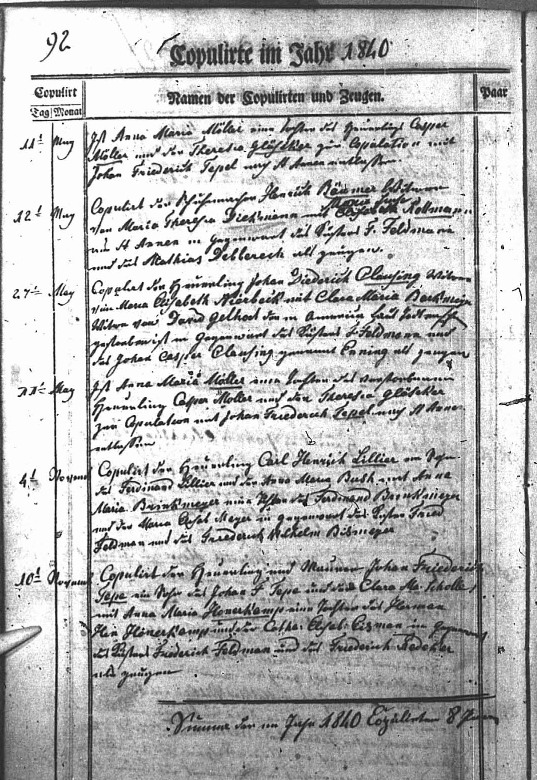 92
Copulirte im Jahr 1840
Copulirt
Tag Monat
Namen der Copulirten und Zeugen.
Paar
11t May Ist Anna Maria Möller eine Tochter des Heuerlings Casper
Möller und der Theresia Gläseker zur Copulation mit
Johan Friederich Tepel nach St Annen entlassen
12t May Copulirt der Schuhmacher Henrich Böumer Witwer
von Maria Theresia Dieckmann mit Elisabeth Rottmann
aus St Annen in Gegenwart des Küsters F. Feldmann
und des Mathias Debbereck als Zeugen.
27t May Copulirt der Heuerling Johan Diederich Clausing Witwer
von Maria Elisabeth Nierbeick mit Clara Maria Beckmeyer
Witwe von David Gelhoet der in America laut
in Gegenwart des Küsters F Feldmann und
des Johan Casper Clausing genannt Enning als Zeugen
May Ist Anna Maria Möller eine Tochter des verstorbenen
Heuerling Casper Möller und der Theresia Gläseker
zur Copulation mit Johan Friederich Tepel nach St Annen
entlassen
4t Copulirt der Heuerling Carl Henrich Lillier ein Sohn
des Ferdinand Lillier und der Anna Maria Bush mit Anna
Maria Brinkmeyer eine Tochter des Ferdinand Brinkmeyer
und der Maria Elisabet Meyer in Gegenwart des Küster Fried
Feldman und des Friederich Wilhelm Bismeyer
10t Copulirt der Heuerling und Maurer Johan Friederich
Tepe ein Sohn des Johan F Tepe und der Clara Ma. Scholle
mit Anna Maria Honerkamp eine Tochter des Herman
Hin Honerkamp und der Catha Elsab. in Gegenwart
des Küsters Friederich Feldman und des Friederich
als Zeugen
Summa der im Jahr 1840 Copulirten 8 Paar